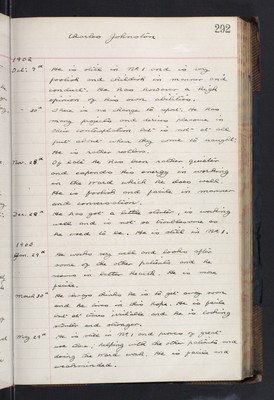 292
Charles Johnston
1902
Oct. 7th He is still in M.R.1 and is very
foolish and childish in manner and
conduct. He has however a high
opinion of his own abilities.
There is no change to report. He has
many projects and various
in contemplation but is not at all
put about when they come to naught.
He is rather restless.
Nov. 18th Of late he has been rather quieter
and expends his energy in working
on the ward which he does well.
He is foolish and facile in manner
and conversation.
Dec. He has got a little stouter, is working
well and is not so troublesome as
he used to be. He is still in M.R.1.
1903
Jan. He works very well and looks after
some of the other patients and he
seems in better health. He is more
facile.
March 30th He always thinks he is to get away soon
and he lives in this hope. He is facile
but at times irritable and he is looking
stouter and stronger.
May He is still in M.1 and proves of great
use there, helping with the other patients and
doing the ward work. He is facile and
weakminded.